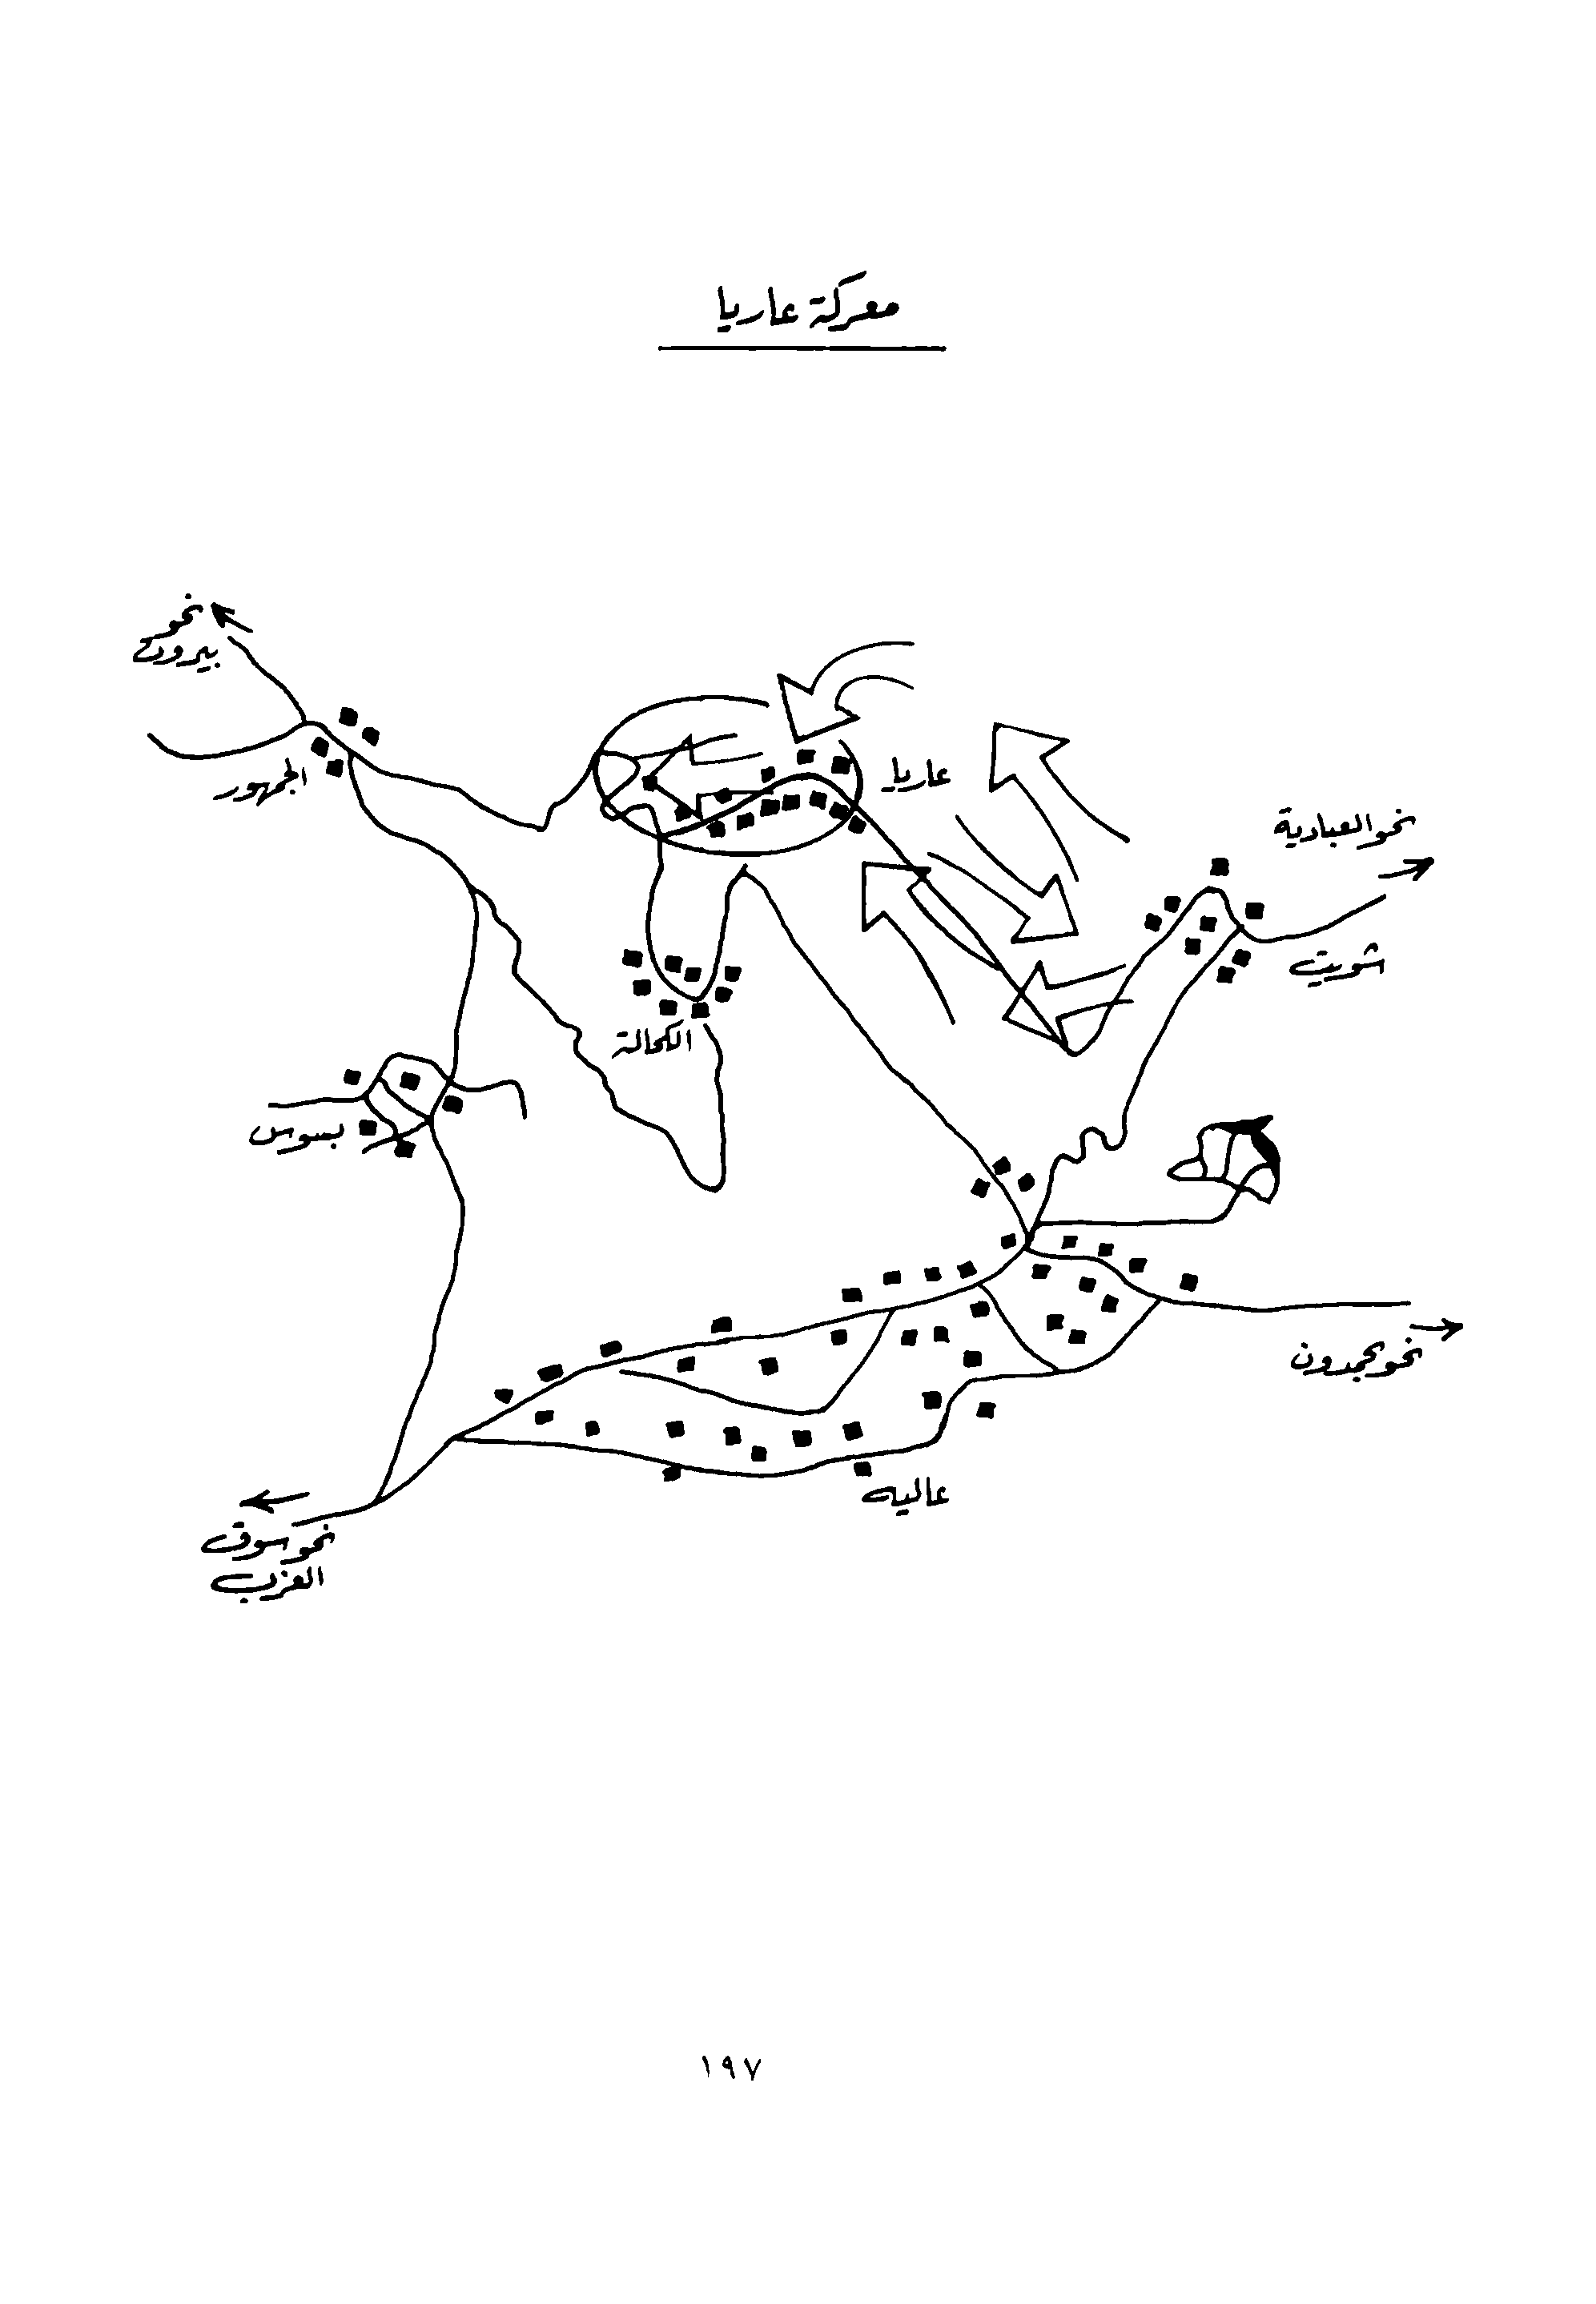 معركة عاريا
نحو
بيروت
الجمهور
عاريا
نحو العبادية
شويت
الكحالة
بسوس
نحو بحمدون
عاليه
نحو سوق
الغرب
١٩٧